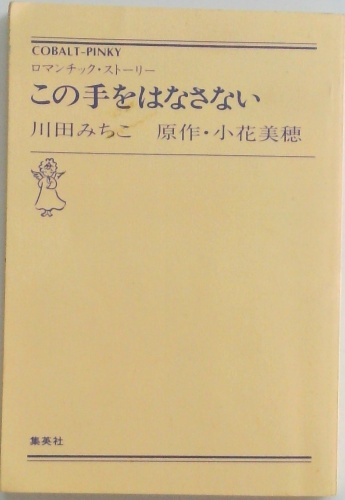 COBALT-PINKY
ロマンチック・ストーリー
この手をはなさない
川田みちこ 原作・小花美穂
集英社